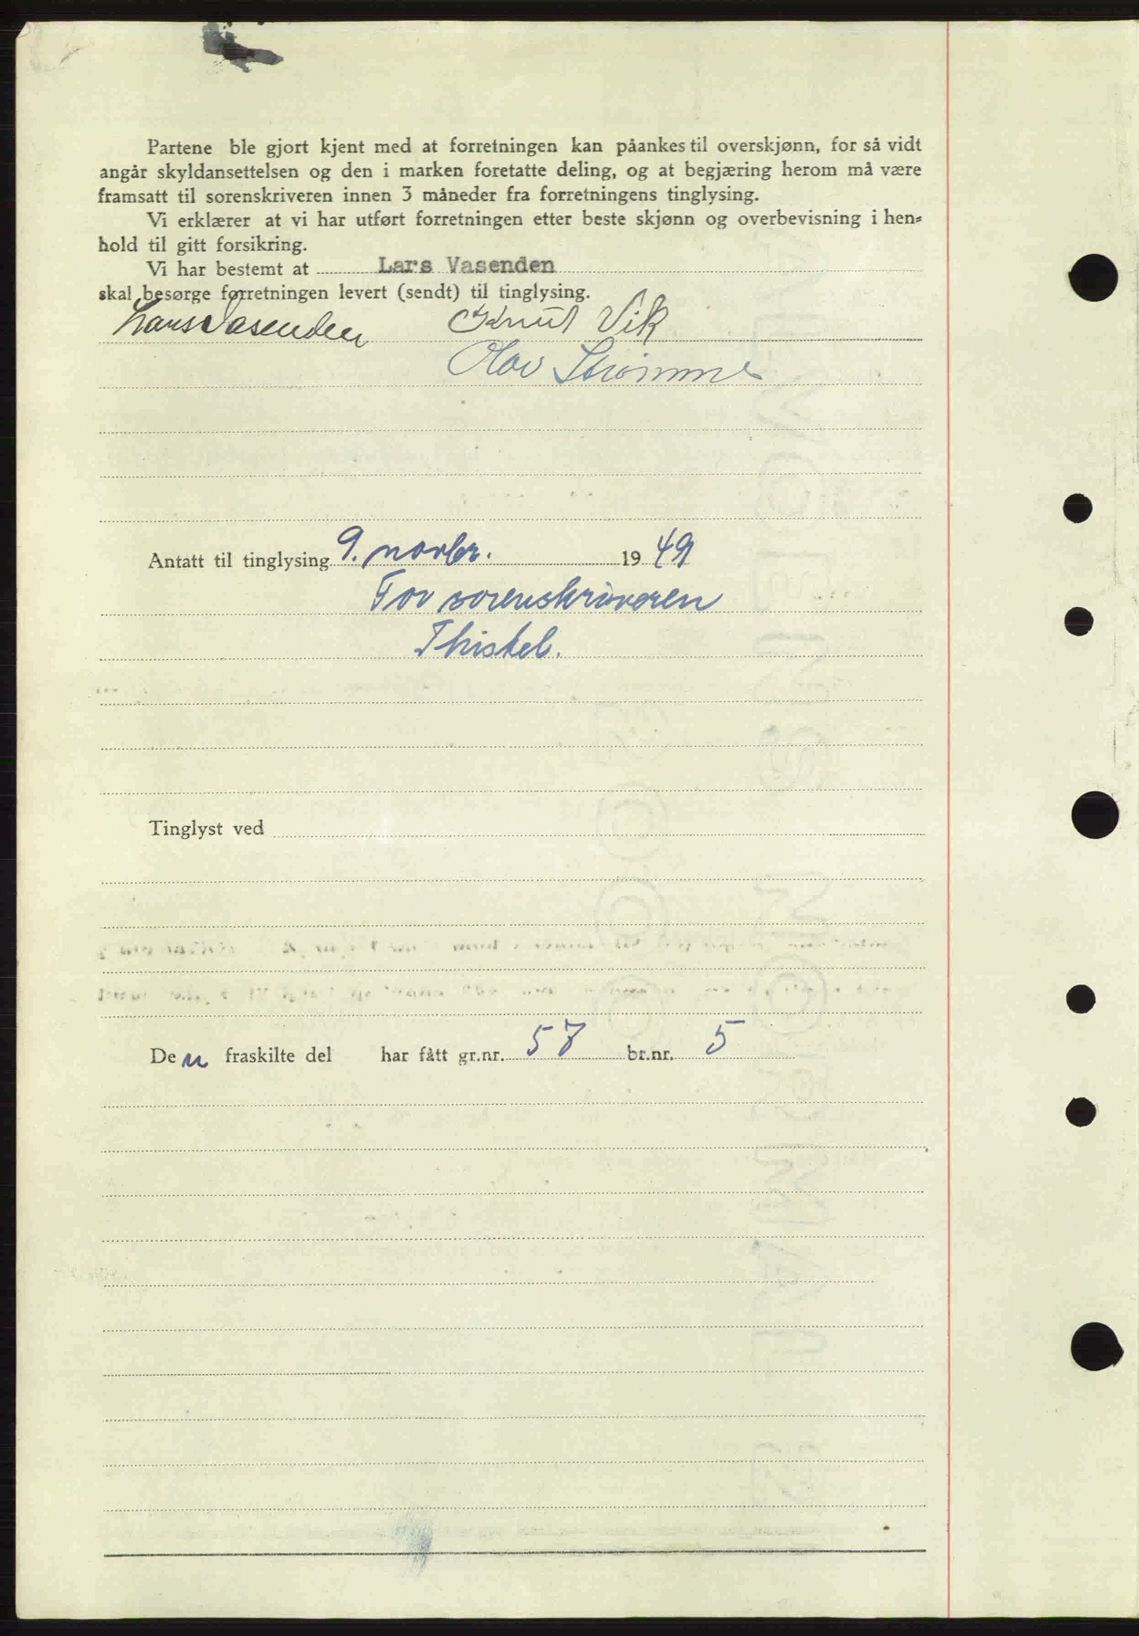 Partene ble gjort kjent med at forretningen kan påankes til overskjønn, for så vidt
angår skyldansettelsen og den i marken foretatte deling, og at begjæring herom må være
framsatt til sorenskriveren innen 3 måneder fra forretningens tinglysing.
Vi erklærer at vi har utført forretningen etter beste skjønn og overbevisning i hen-
hold til gitt forsikring.
Vi har bestemt at Lars Vasenden
skal besørge forretningen levert (sendt) til tinglysing.
Lars Vasenden Knut Vik
Olav Strømme
Antatt til tinglysing 9. novbr. 1949
For sorenskriveren
Thiskel.
Tinglyst ved
Den fraskilte del har fått gr.nr. 57 br.nr. 5